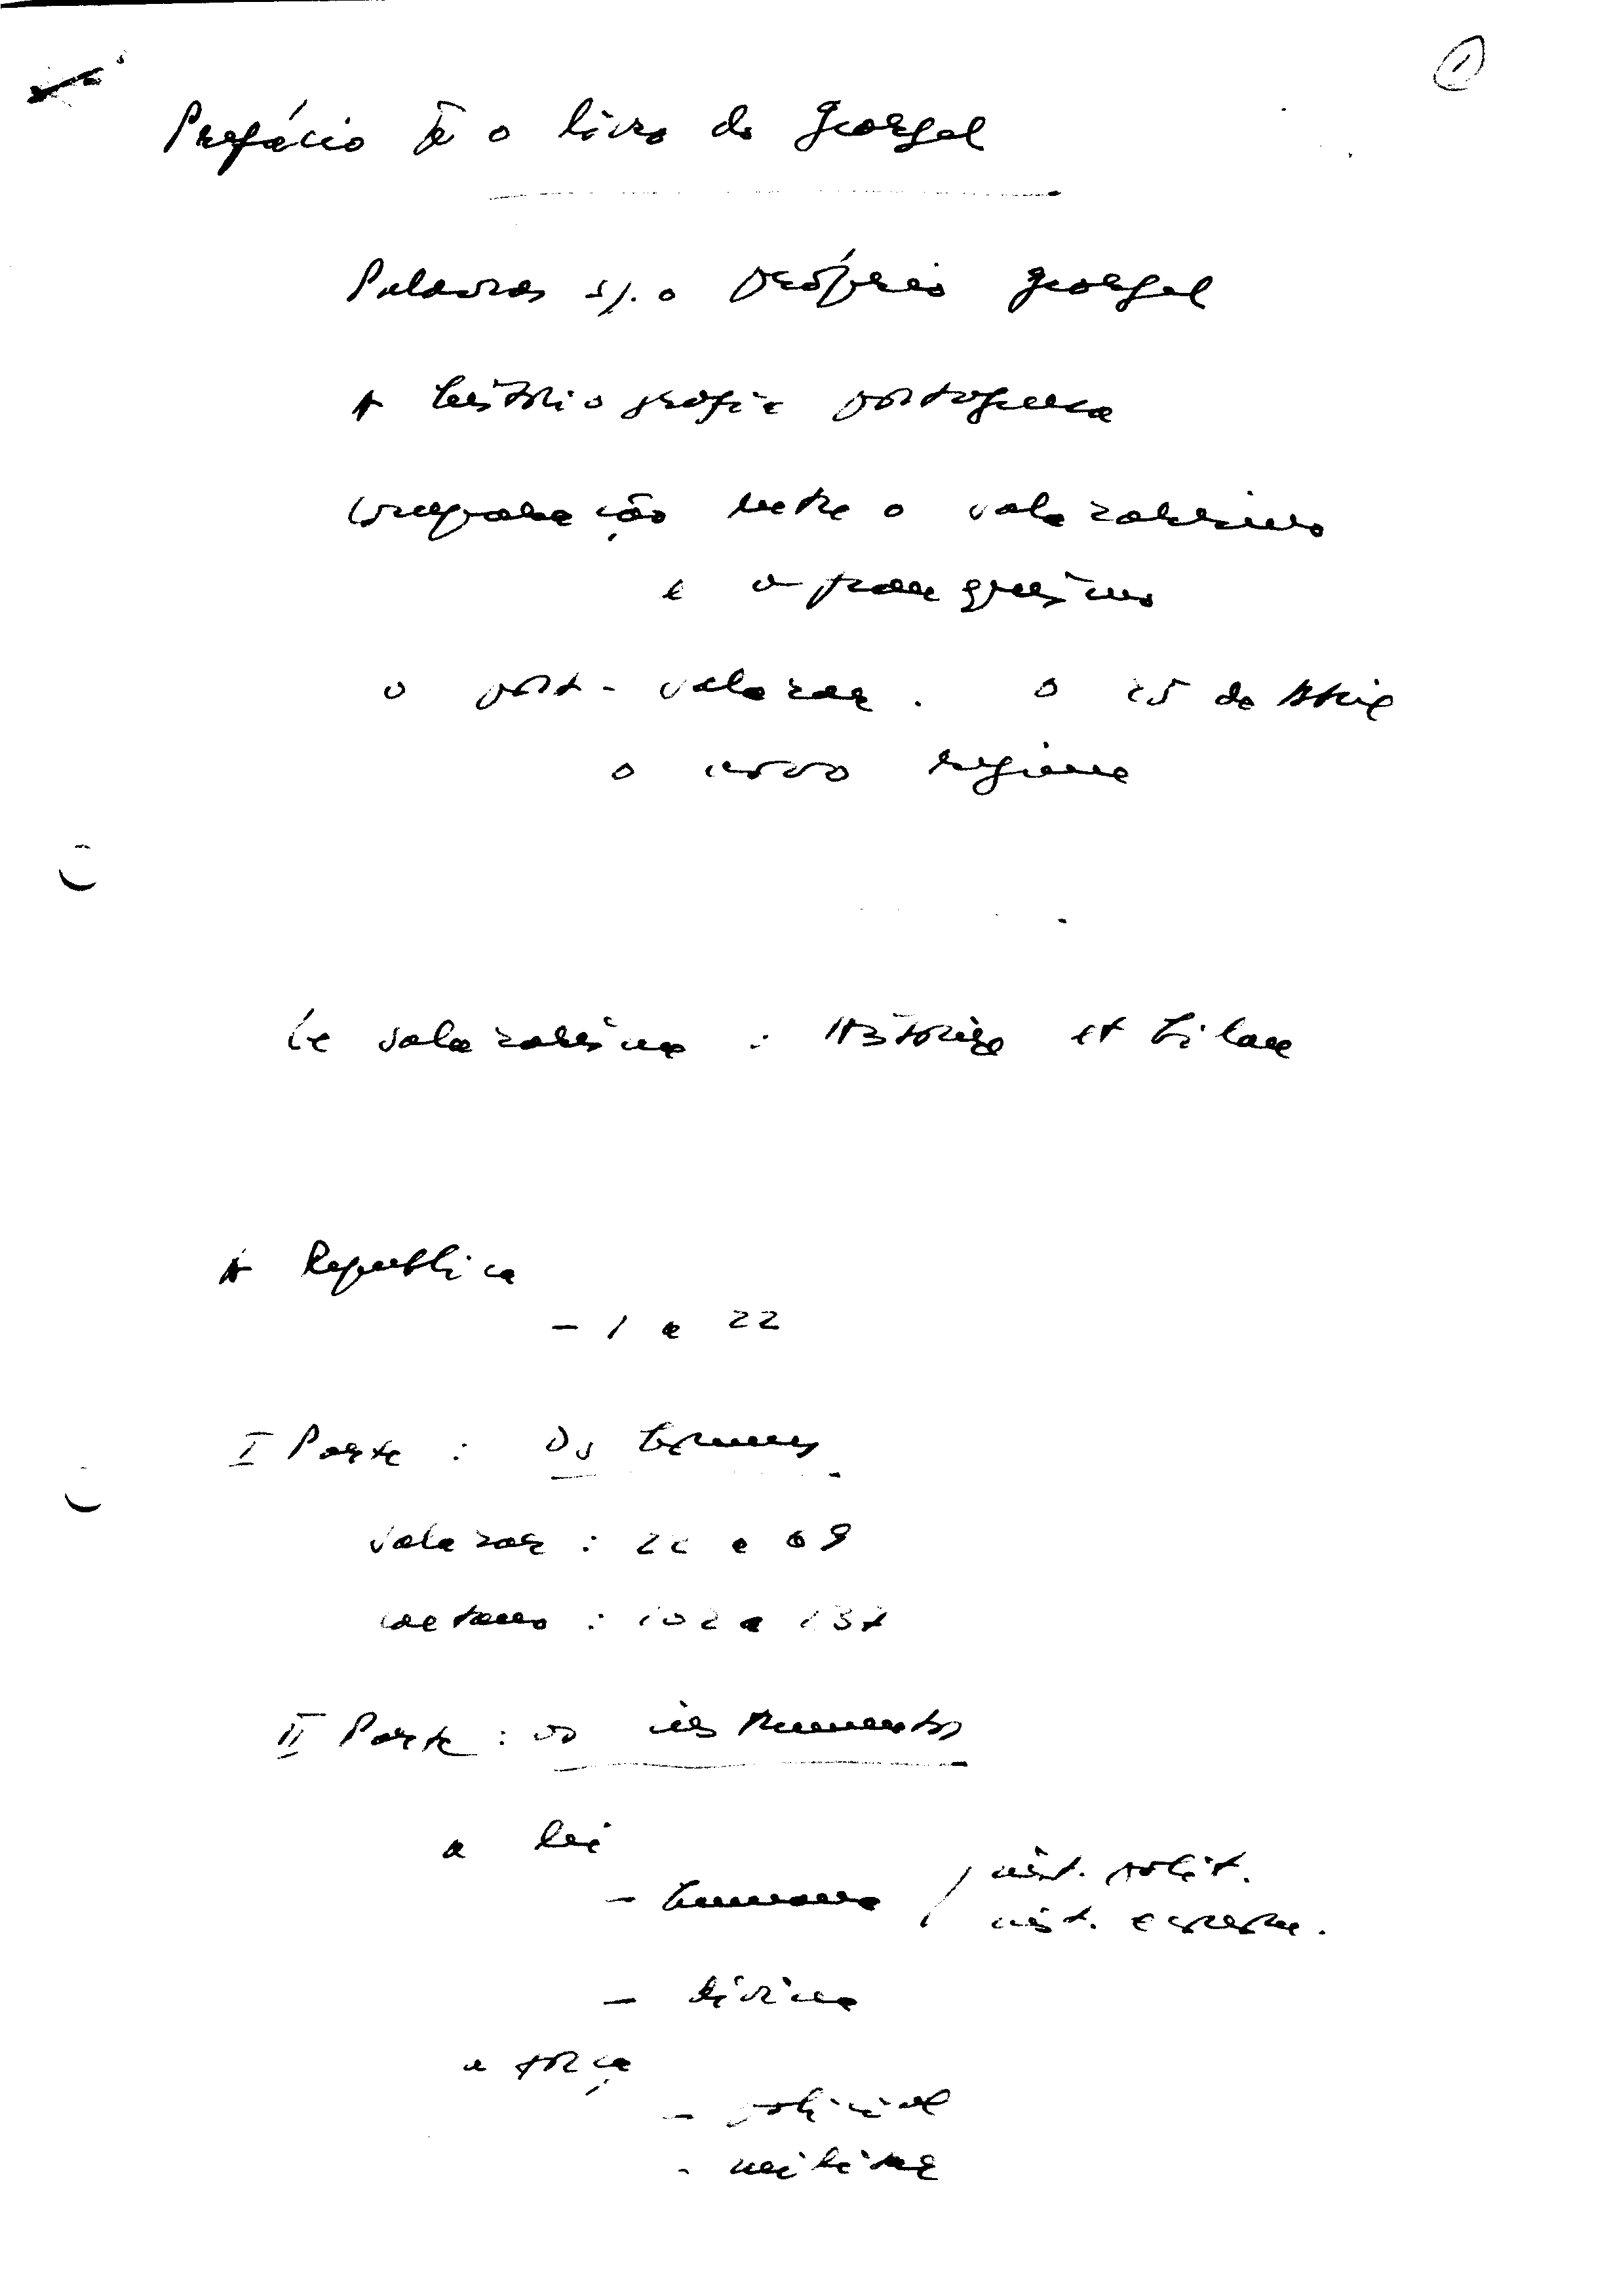 1
Prefácio pª o livro de Georgel
Palavras s/. o próprio Georgel
A historiografia portuguesa
Comparação entre o salazarismo
e o franquismo
o post-salazar. O 25 de Abril
o novo regime
Le salazarisme : Histoire et bilan
A Republica
- 1 a 22
I Parte : Os homens
salazar : 22 a 69
caetano : 102 a 137
II Parte : os instrumentos
a lei
- humana / inst. polit.
inst. corpor.
- divina
a força
- policial
- militar